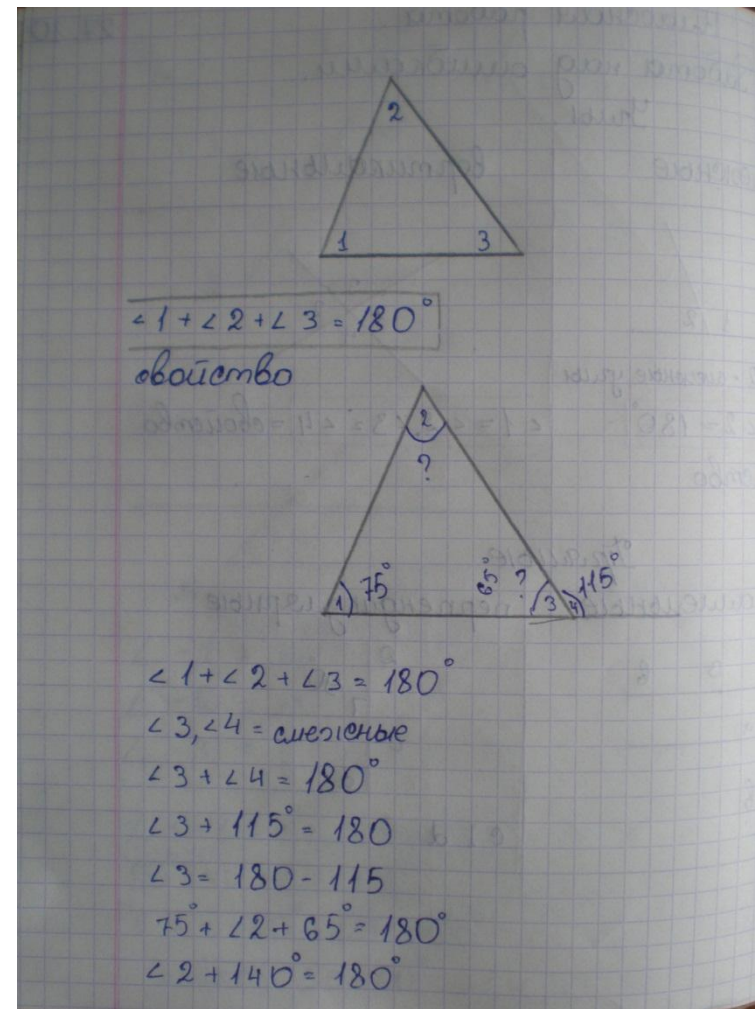 2
1 3
∠1+∠2+∠3=180°
свойство
2
?
1 75° 65° ? 3 4 115°
∠1+∠2+∠3=180°
∠3,∠4=смежные
∠3+∠4=180°
∠3+115°=180
∠3=180-115
75°+∠2+65°=180°
∠2+140°=180°